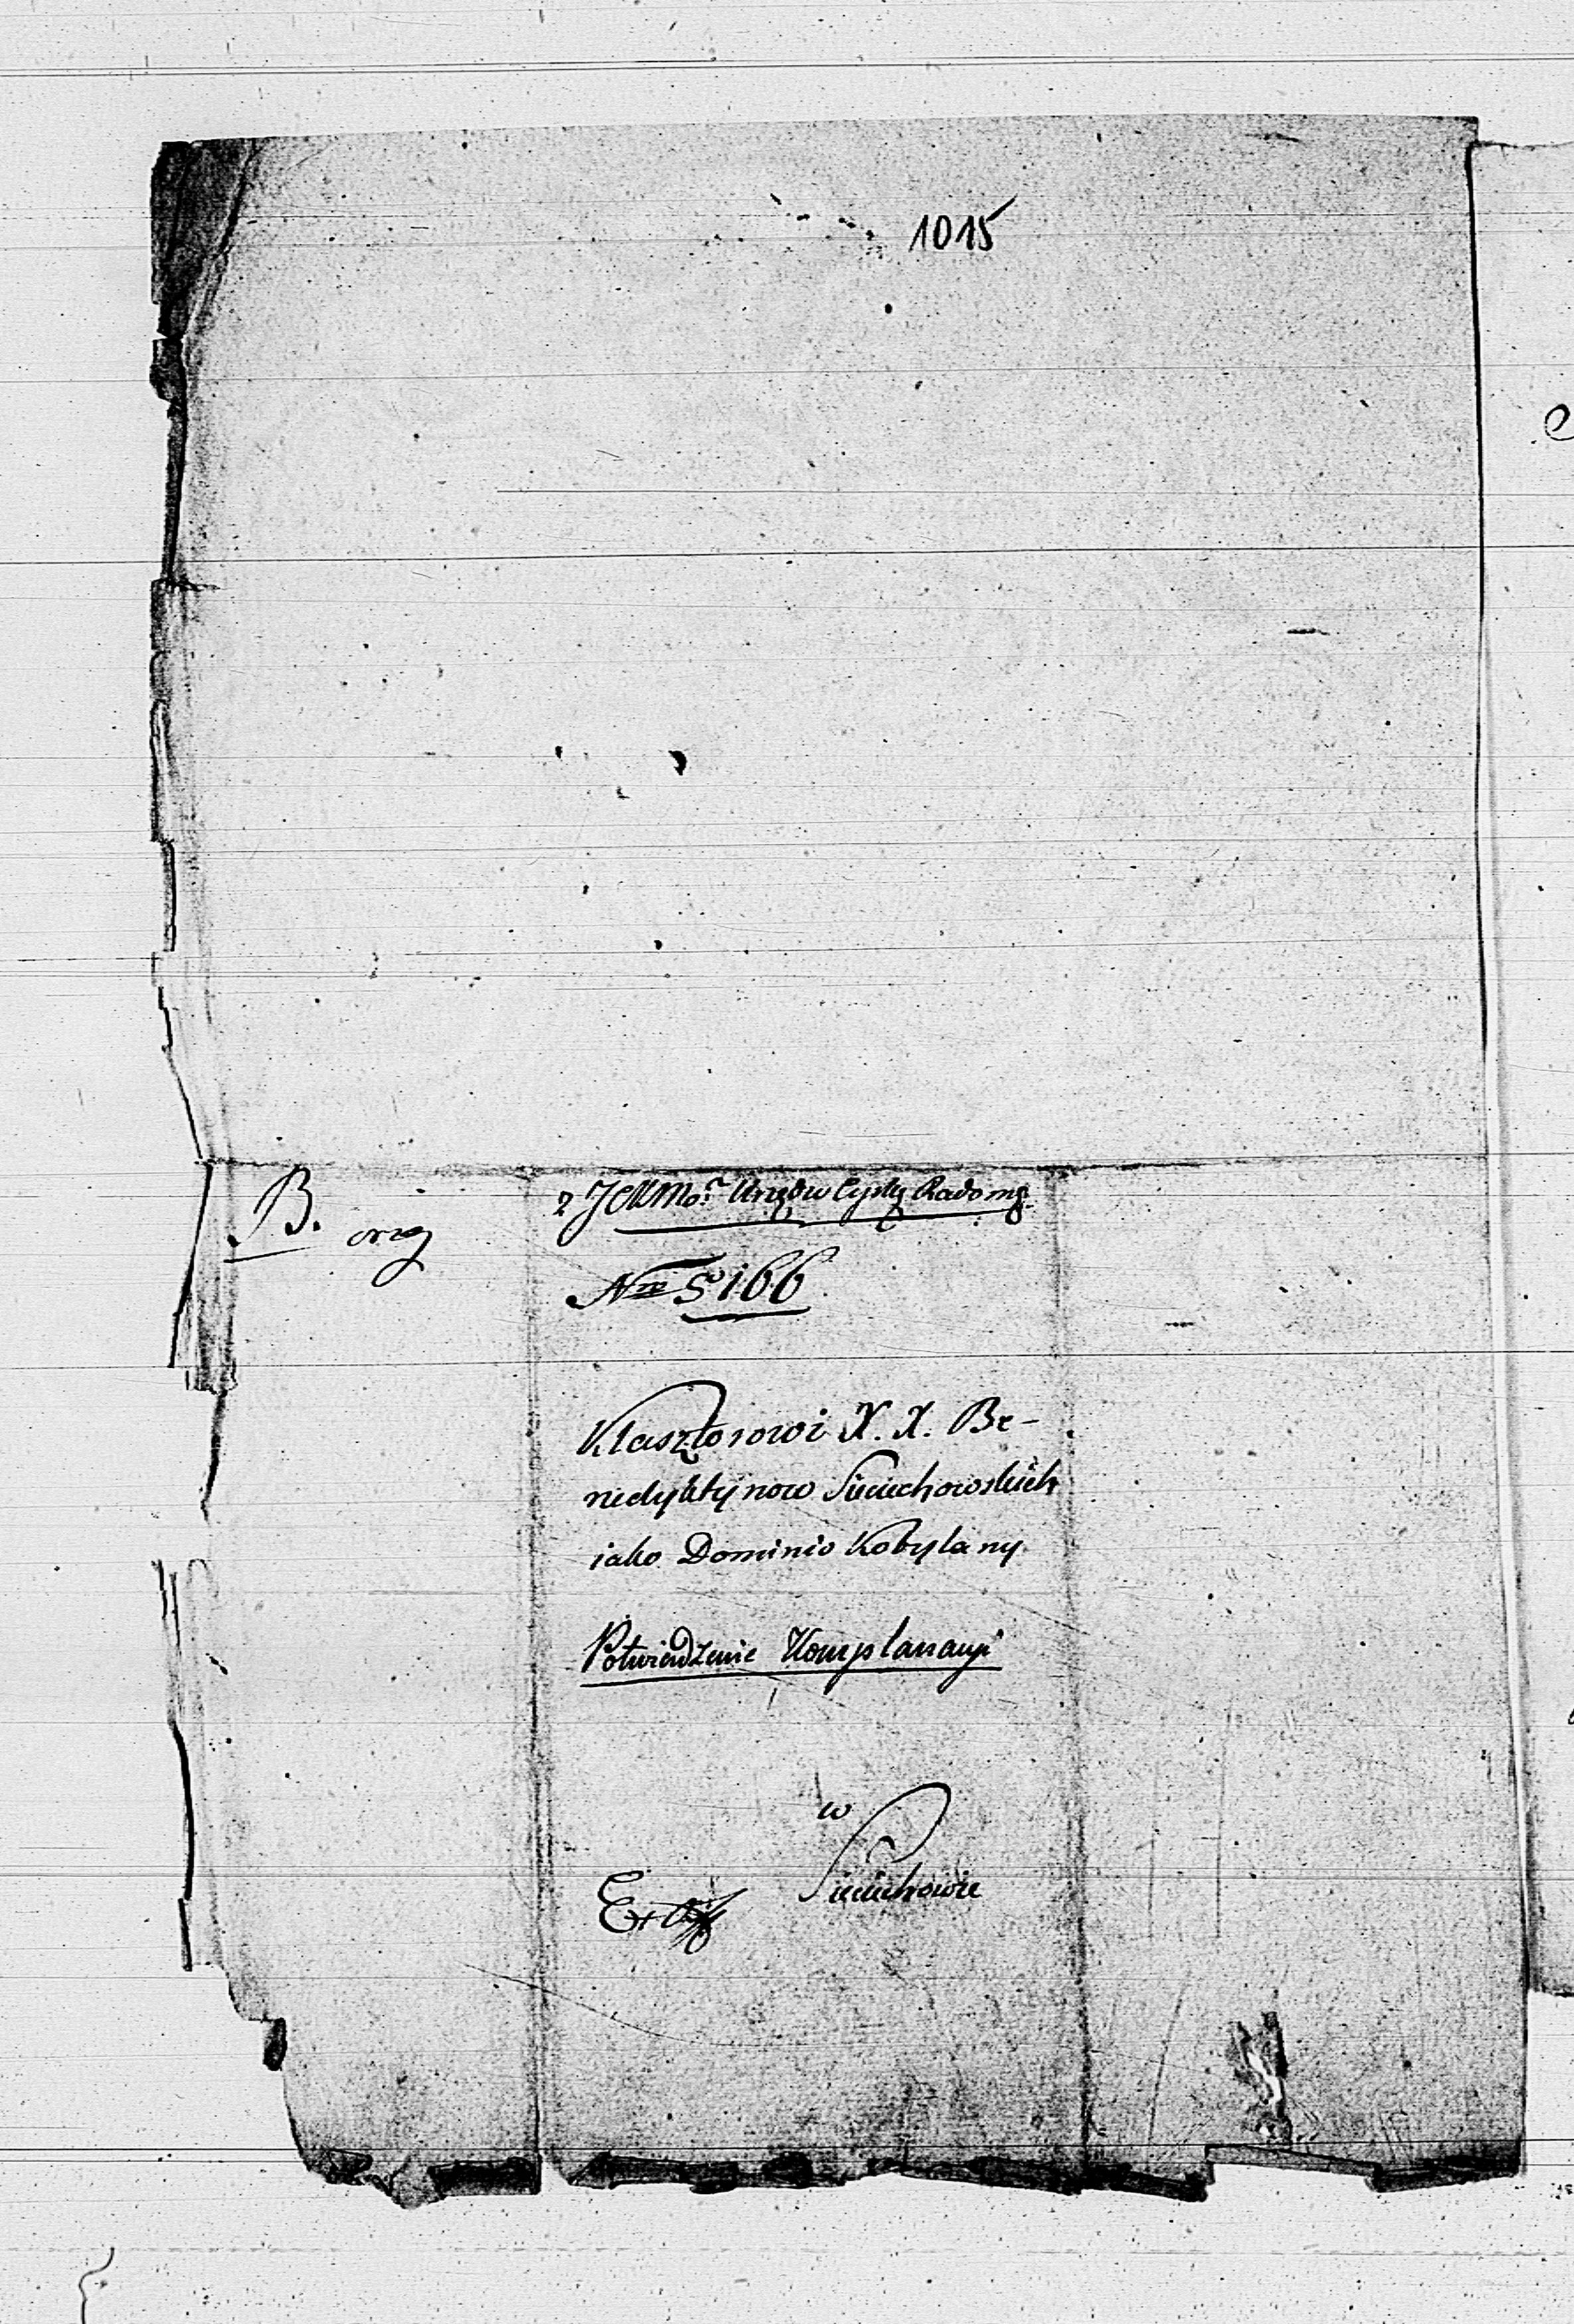 1015
B. orig
z JCKMo: Urzędu Cyrkę Radomg.
Nro 5166
Klasztorowi X. X. Be-
nedyktynow Sieciechowskich
iako Dominio Kobylany
Potwierdzenie Komplanacyi
w
Sieciechowie